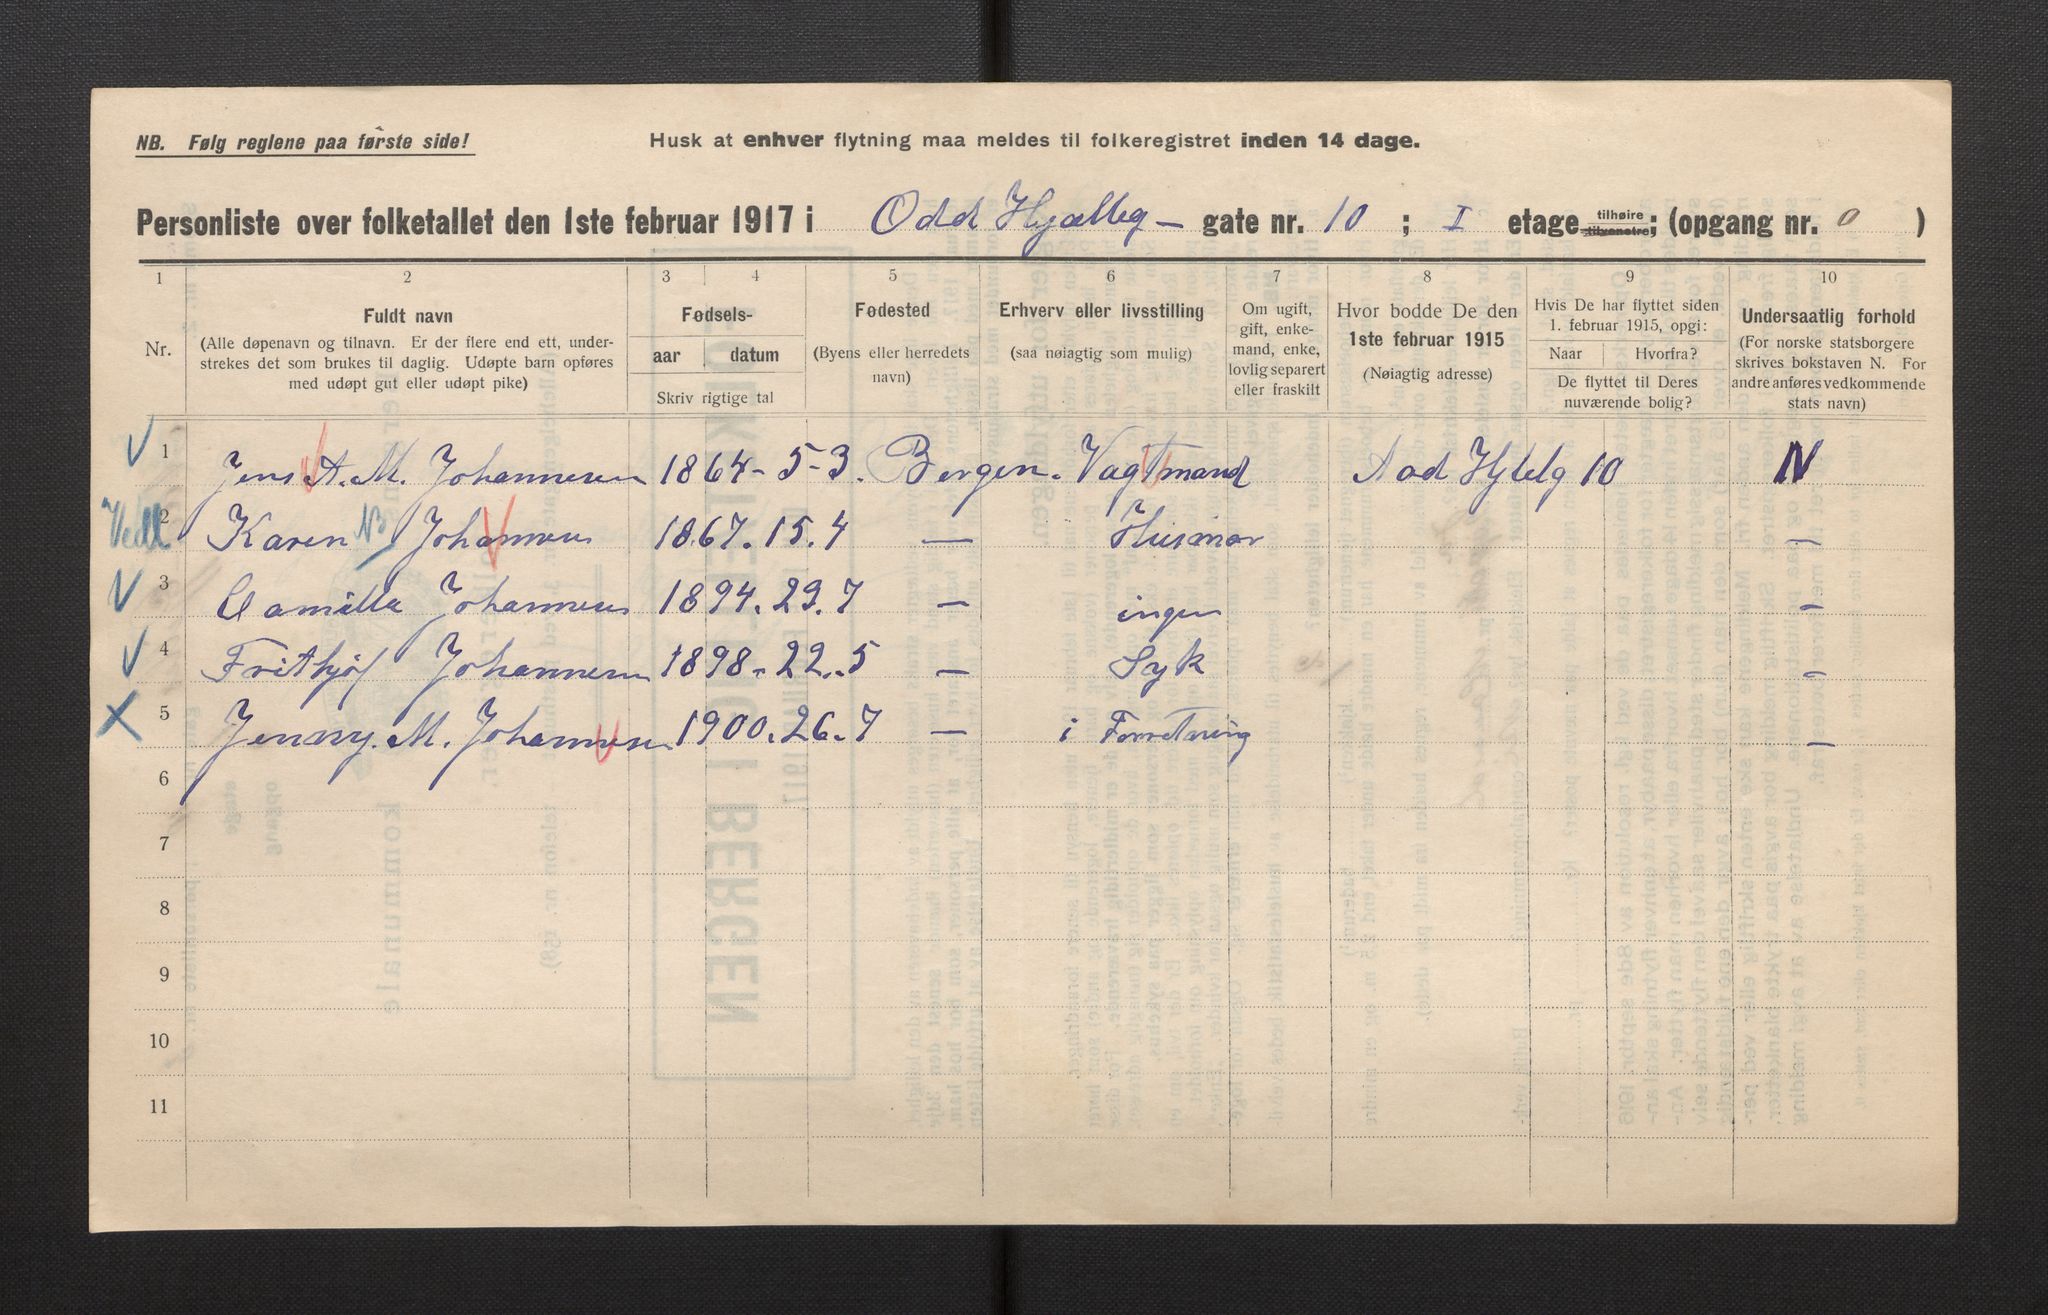 NB. Følg reglene paa første side!
Husk at enhver flytning maa meldes til folkeregistret inden 14 dage.
Personliste over folketallet den 1ste februar 1917 i Odd Hjælleg — gate nr. 10 ; I etage tilhøire tilvenstre; (opgang nr. 0 )
1 2 3 4 5 6 7 8 9 10
Nr.
Fuldt navn
(Alle døpenavn og tilnavn. Er der flere end ett, under-
strekes det som brukes til daglig. Udøpte barn opføres
med udøpt gut eller udøpt pike)
Fødsels-
aar datum
Skriv rigtige tal
Fødested
(Byens eller herredets
navn)
Erhverv eller livsstilling
(saa nøiagtig som mulig)
Om ugift,
gift, enke-
mand, enke,
lovlig separert
eller fraskilt
Hvor bodde De den
1ste februar 1915
(Nøiagtig adresse)
Hvis De har flyttet siden
1. februar 1915, opgi:
Naar Hvorfra?
De flyttet til Deres
nuværende bolig?
Undersaatlig forhold
(For norske statsborgere
skrives bokstaven N. For
andre anføres vedkommende
stats navn)
1 Jens A. M. Johannesen 1864 - 5 - 3. Bergen. Vagtmand Aad Hjlelg 10 N
Vedl. 2 Karen Johannesen 1867. 15. 4 — Husmor —
3 Camilla Johannesen 1894. 29. 7 — ingen —
4 Frithjof Johannesen 1898 - 22. 5 — Syk —
5 Jenny. M. Johannesen 1900. 26. 7 — i Forretning —
6
7
8
9
10
11